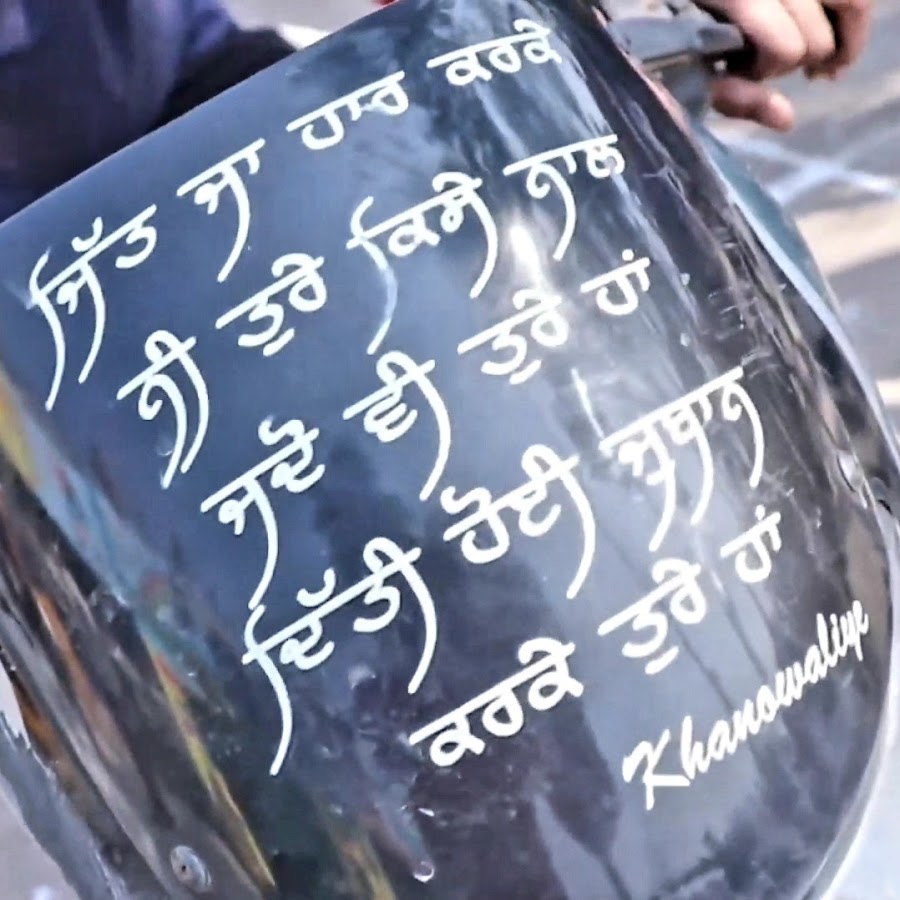 ਜਿੱਤ ਜਾ ਹਾਰ ਕਰਕੇ
ਨੀ ਤੁਰੇ ਕਿਸੇ ਨਾਲ
ਜਦੋ ਵੀ ਤੁਰੇ ਹਾਂ
ਦਿੱਤੀ ਹੋਈ ਜੁਬਾਨ
ਕਰਕੇ ਤੁਰੇ ਹਾਂ
Khanowaliye